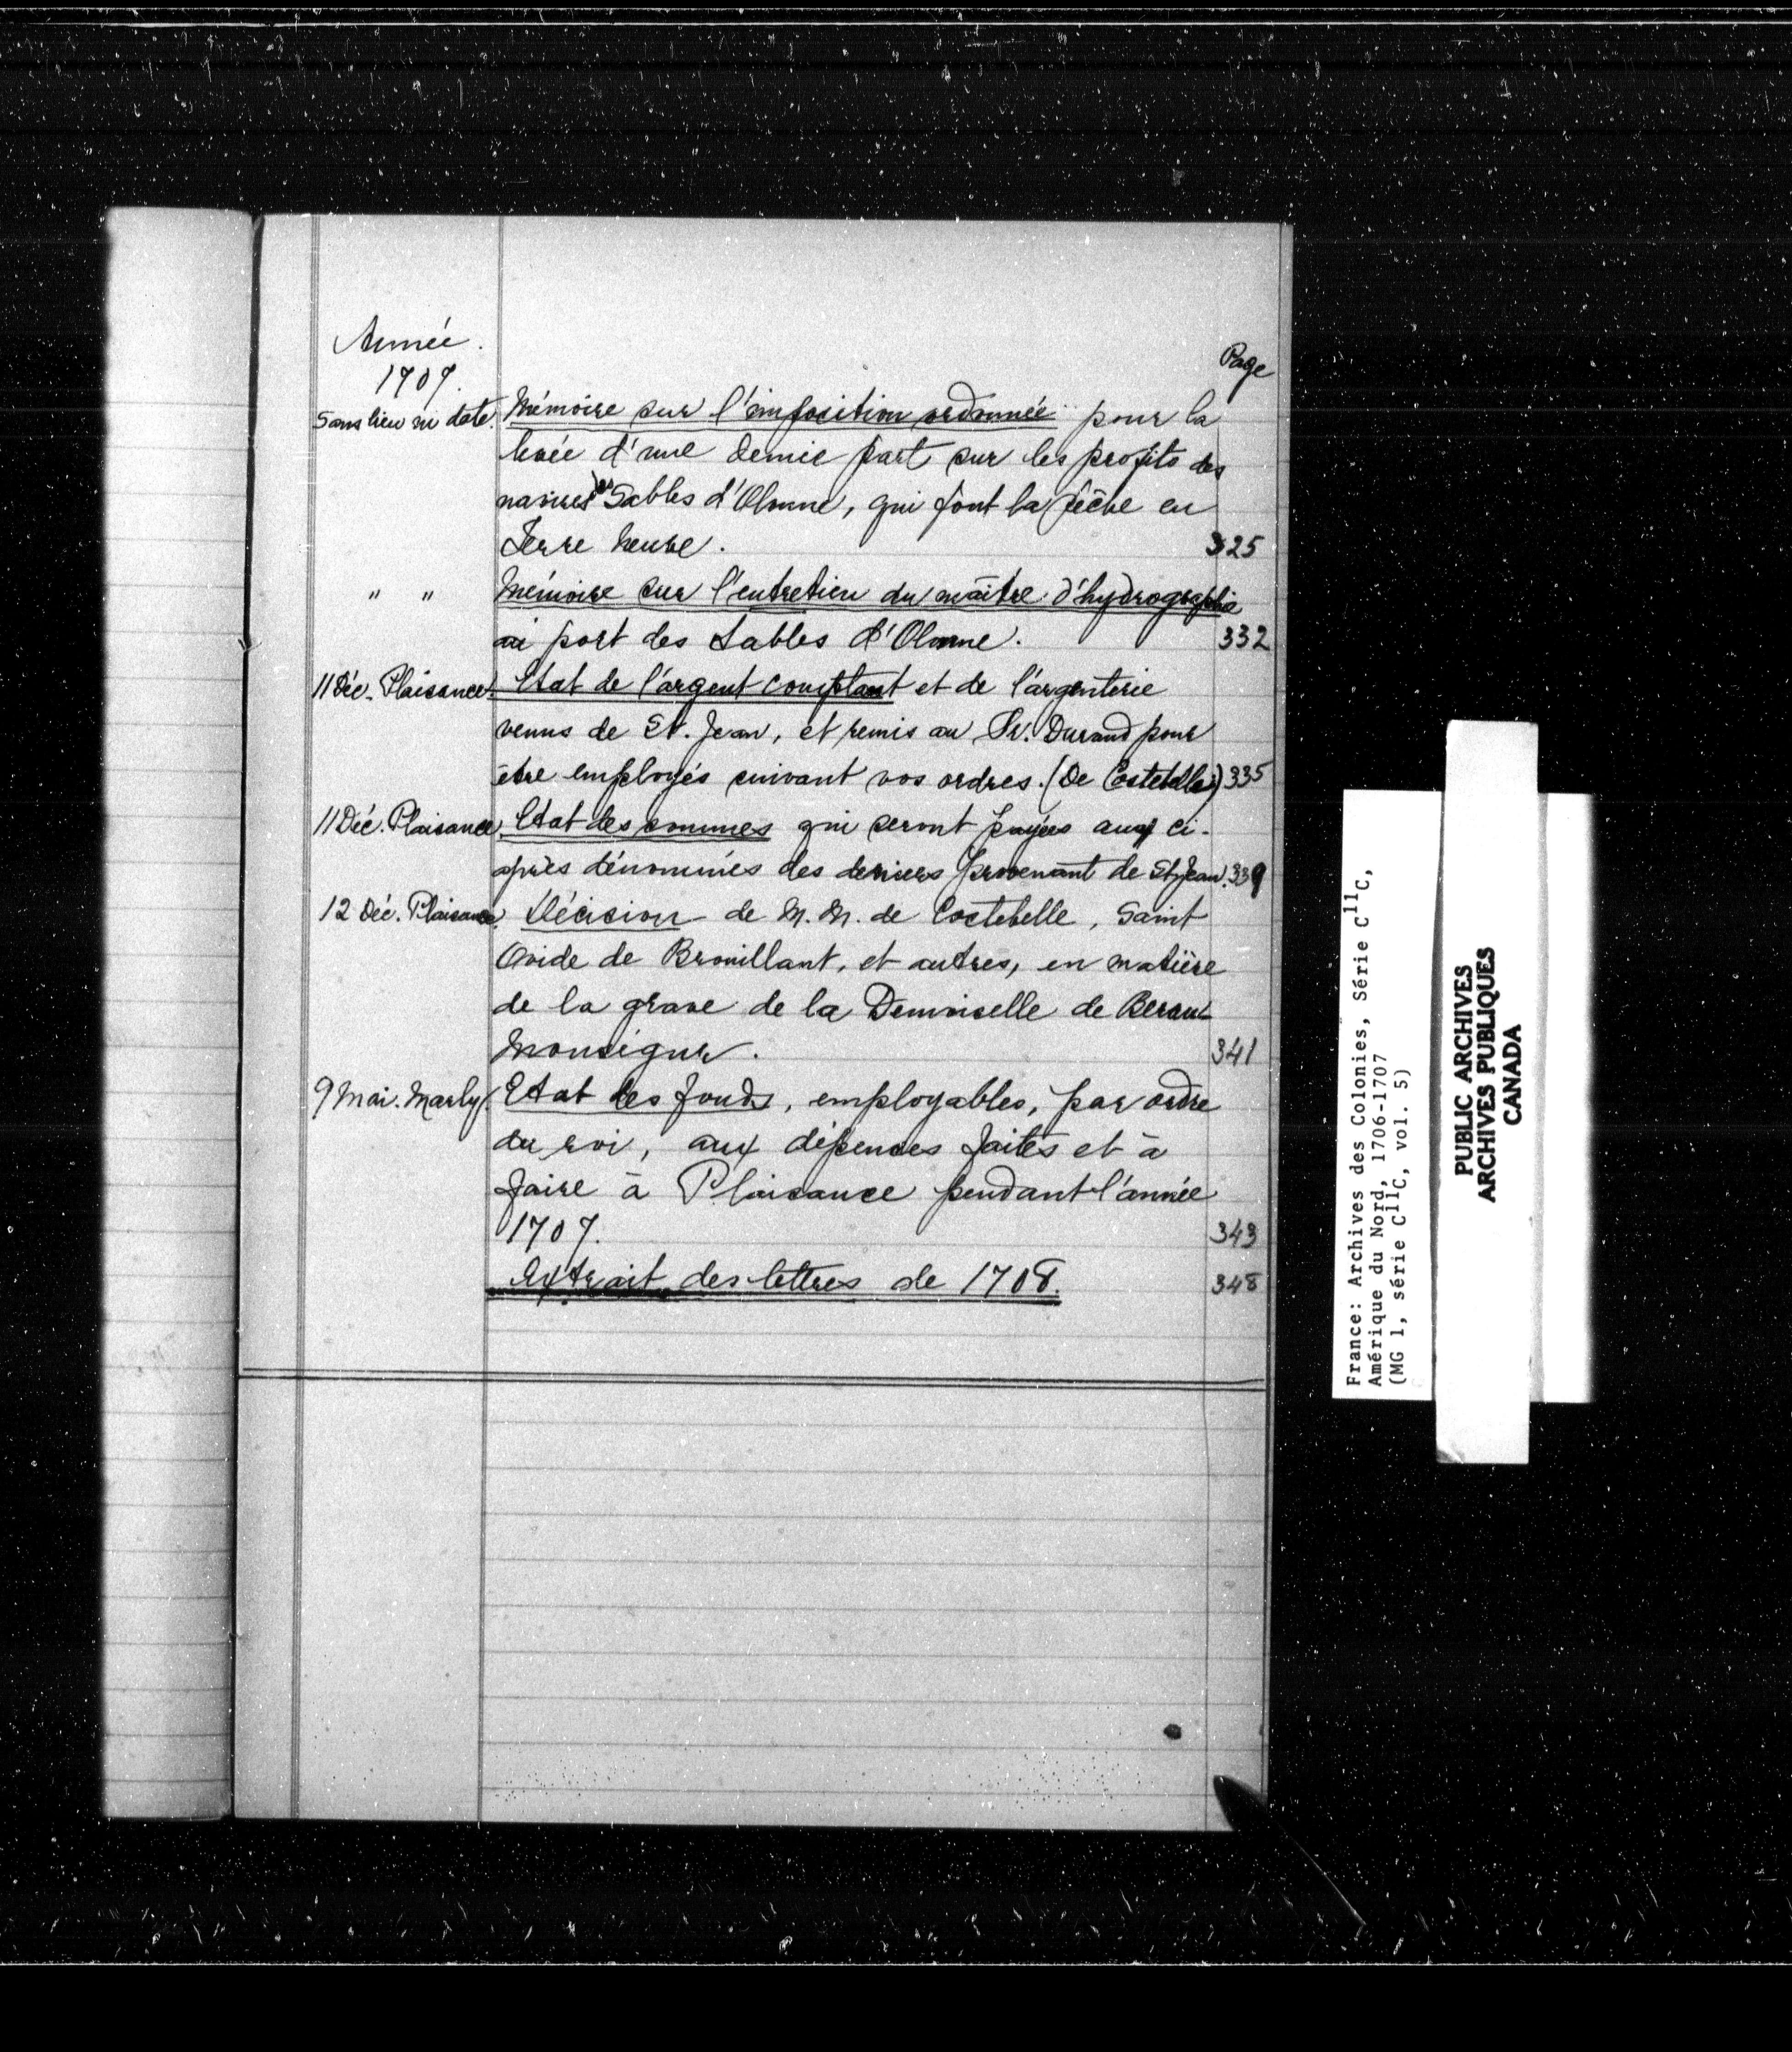 Année.
1707.
Page
Sans lieu ni date. Mémoire sur l'imposition ordonnée pour la
levée d'une demie part sur les profits des
navires des Sables d'Olonne, qui font la pêche en
Terre Neuve. 325
" " Mémoire sur l'entretien du maître d'hydrographie
au port des Sables d'Olonne. 332
11 Déc. Plaisance. Etat de l'argent comptant et de l'argenterie
venus de St. Jean, et remis au Sr. Durand pour
être employés suivant vos ordres. (De Costebelle) 335
11 Déc. Plaisance. Etat des sommes qui seront payées aux ci-
après dénommés des deniers provenant de St Jean. 339
12 Déc. Plaisance. Décision de M. M. de Costebelle, Saint
Ovide de Brouillant, et autres, en matière
de la grave de la Demoiselle de Berau-
Monsigur. 341
9 Mai. Marly. Etat des fonds, employables, par ordre
du roi, aux dépenses faites et à
faire à Plaisance pendant l'année
1707. 343
Extrait des lettres de 1708. 348
France: Archives des Colonies, Série C11C,
Amérique du Nord, 1706-1707
(MG 1, série C11C, vol. 5)
PUBLIC ARCHIVES
ARCHIVES PUBLIQUES
CANADA